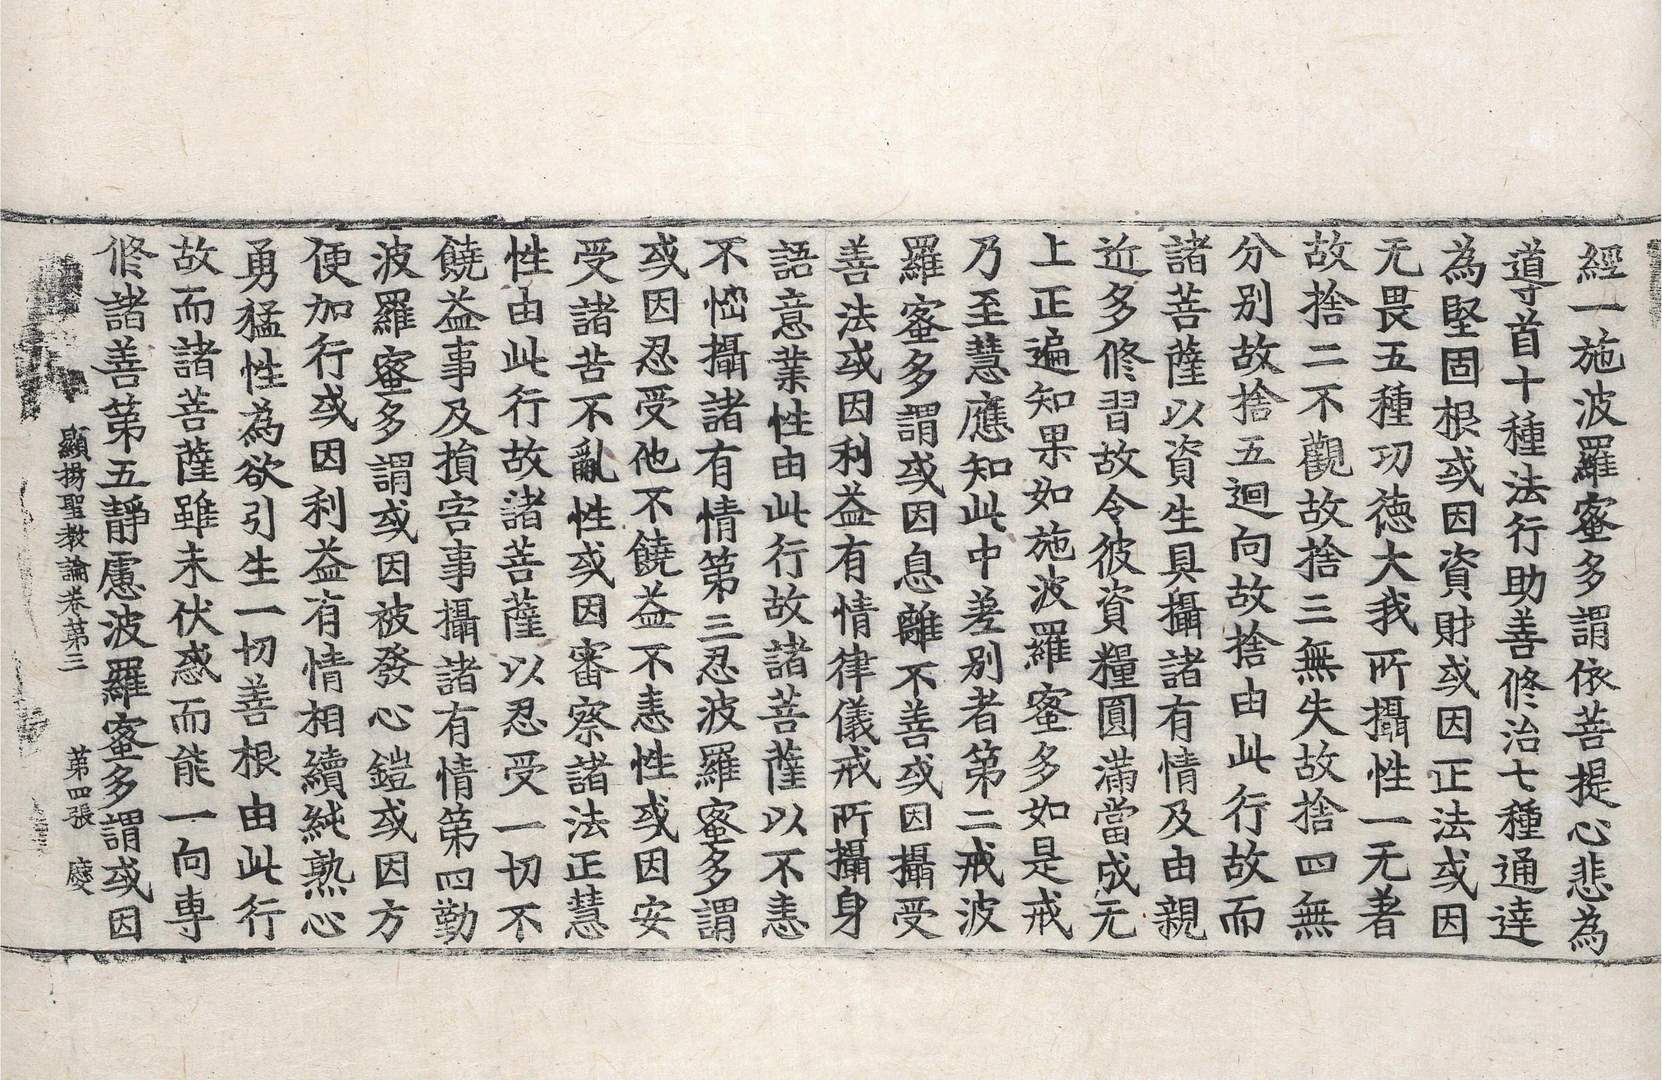 經一施波羅蜜多謂依菩提心悲為
導首十種法行助善修治七種通達
為堅固根或因資財或因正法或因
无畏五種功德大我所攝性一无著
故捨二不觀故捨三無失故捨四無
分別故捨五迴向故捨由此行故而
諸菩薩以資生具攝諸有情及由親
近多修習故令彼資糧圓滿當成无
上正遍知果如施波羅蜜多如是戒
乃至慧應知此中差別者第二戒波
羅蜜多謂或因息離不善或因攝受
善法或因利益有情律儀戒所攝身
語意業性由此行故諸菩薩以不恚
不惱攝諸有情第三忍波羅蜜多謂
或因忍受他不饒益不恚性或因安
受諸苦不亂性或因審察諸法正慧
性由此行故諸菩薩以忍受一切不
饒益事及損害事攝諸有情第四勤
波羅蜜多謂或因被發心鎧或因方
便加行或因利益有情相續純熟心
勇猛性為欲引生一切善根由此行
故而諸菩薩雖未伏惑而能一向專
修諸善第五靜慮波羅蜜多謂或因
顯揚聖教論卷第三 第四張 慶